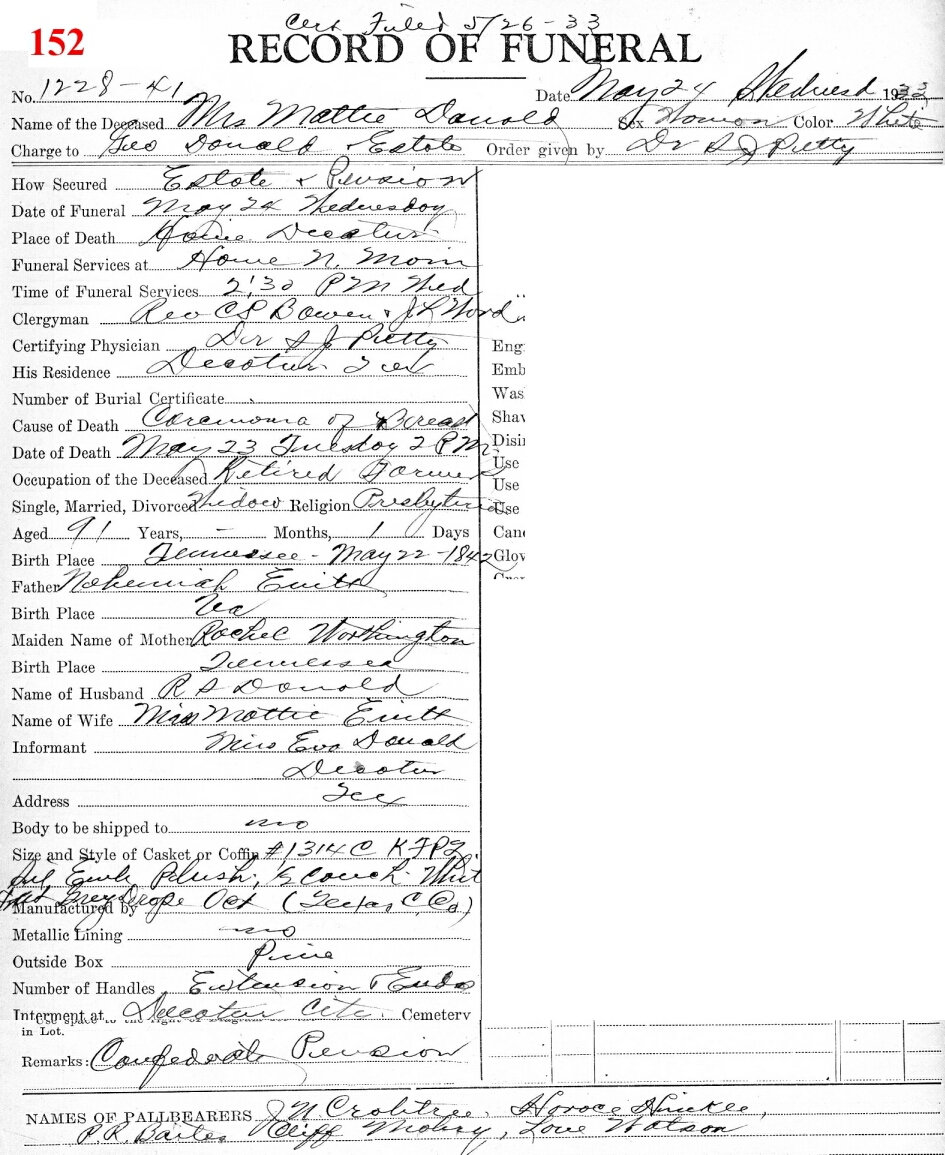 Cert Filed 5/26-33
152
RECORD OF FUNERAL
No. 1228-41 Date May 24 Wednesd 1933
Name of the Deceased Mrs Mattie Donald Sex Woman Color White
Charge to Geo Donald & Estate Order given by Dr S J Petty
How Secured Estate & Pension
Date of Funeral May 24 Wednesday
Place of Death Home Decatur
Funeral Services at Home N. Main
Time of Funeral Services 2:30 PM Wed
Clergyman Rev C S Bowen & J L Word
Certifying Physician Dr S J Petty
Eng
His Residence Decatur Tex
Emb
Number of Burial Certificate
Was
Cause of Death Carcinoma of Breast
Shav
Date of Death May 23 Tuesday 2 PM
Disin
Occupation of the Deceased Retired Farmer
Use
Use
Single, Married, Divorced Widow Religion Presbyterian
Use
Aged 91 Years, - Months, 1 Days
Cand
Birth Place Tennessee - May 22 - 1842
Glov
Father Nehemiah
Birth Place Va
Maiden Name of Mother Rachel Worthington
Birth Place Tennessee
Name of Husband R S Donald
Name of Wife Miss Mattie
Informant Miss Eva Donald
Decatur
Address Tex
Body to be shipped to no
Size and Style of Casket or Coffin #1314 C K F P Z
Plush, ½ Couch
Manufactured by Grey Drape Oct (Texas C. Co)
Metallic Lining no
Outside Box Pine
Number of Handles Extension & Ends
Interment at Decatur City Cemetery
in Lot.
Remarks: Confederate Pension
NAMES OF PALLBEARERS J N Crabtree, Horace Hinkle,
P. R. Bates Cliff Mobry, Love Watson